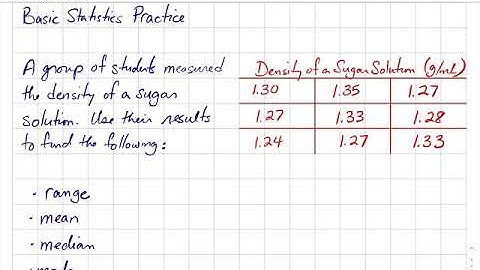 Basic Statistics Practice
A group of students measured
the density of a sugar
solution. Use their results
to find the following:
Density of a Sugar Solution (g/mL)
1.30 1.35 1.27
1.27 1.33 1.28
1.24 1.27 1.33
· range
· mean
· median